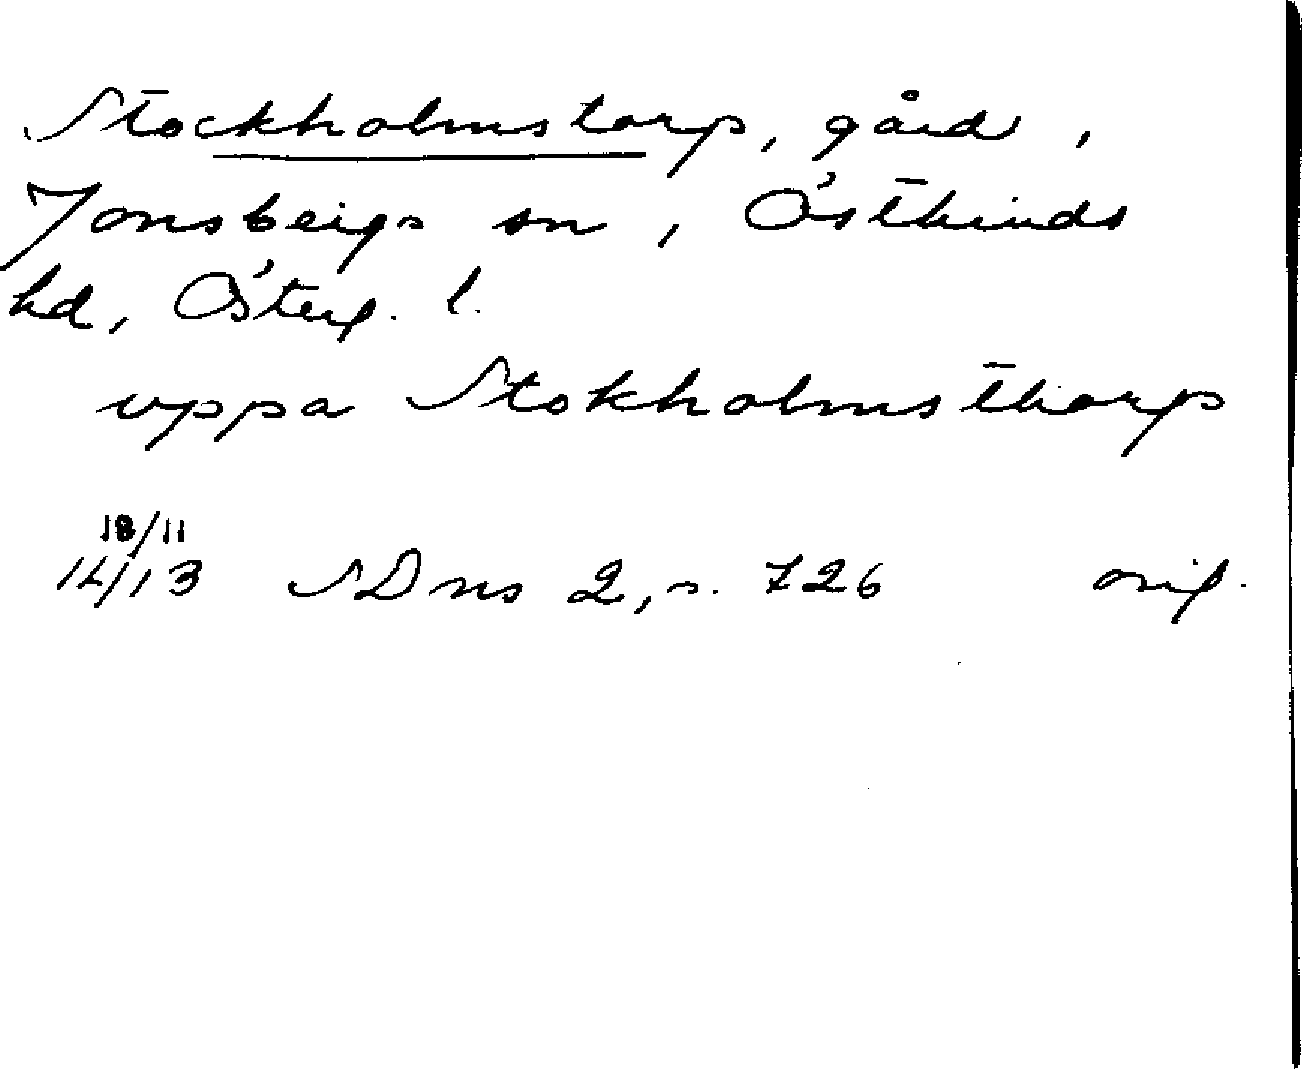 Stockholmstorp, gård,
Jonsbergs sn, Östkinds
hd, Österg. l.
uppa Stokholmsthorp
18/11
14/13 SDns 2, s. 726 orig.